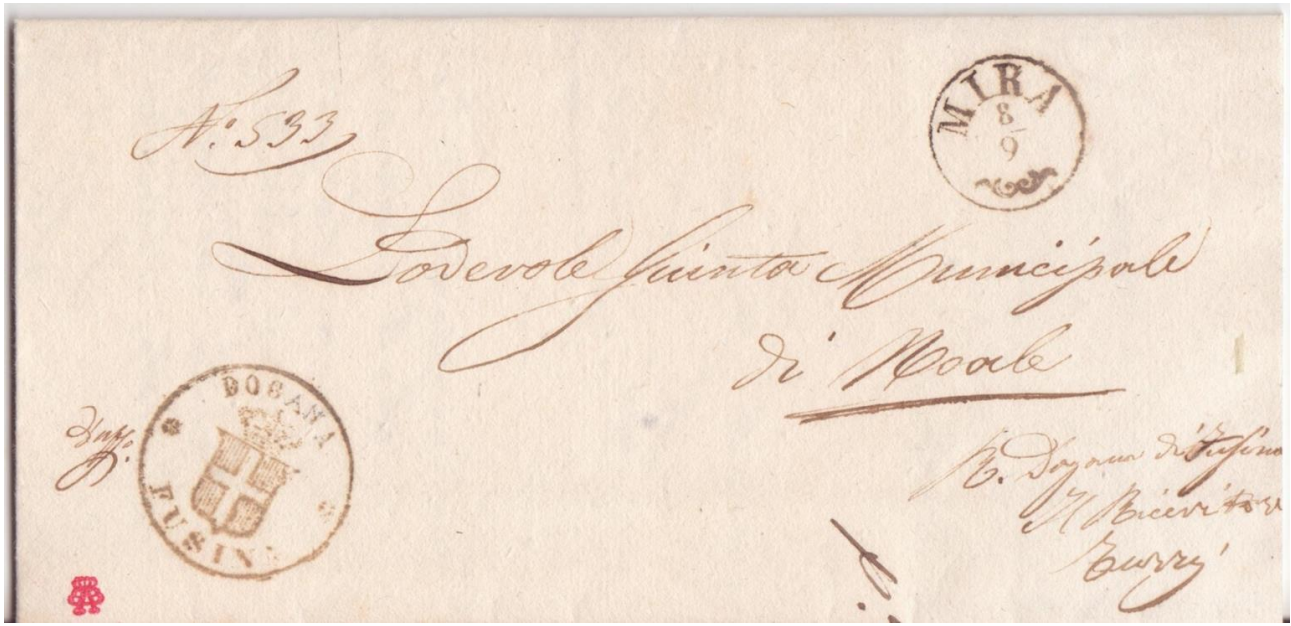 N.º 533
MIRA
8/9
Lodevole Giunta Municipale
di Noale
DOGANA
FUSINA
R. Dogana di Fusina
Il Ricevitore